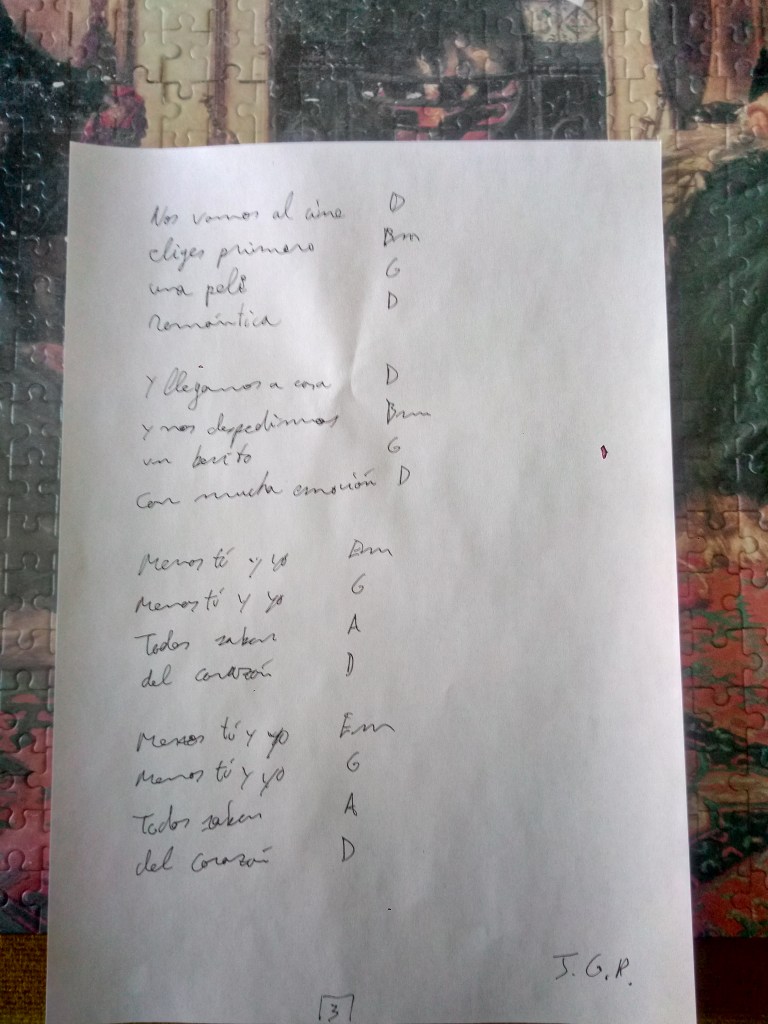 Nos vamos al cine D
eliges primero Bm
una peli G
romántica D
Y llegamos a casa D
y nos despedimos Bm
un besito G
con mucha emoción D
Menos tú y yo Em
Menos tú y yo G
Todos saben A
del corazón D
Menos tú y yo Em
Menos tú y yo G
Todos saben A
del corazón D
J. G. R.
3